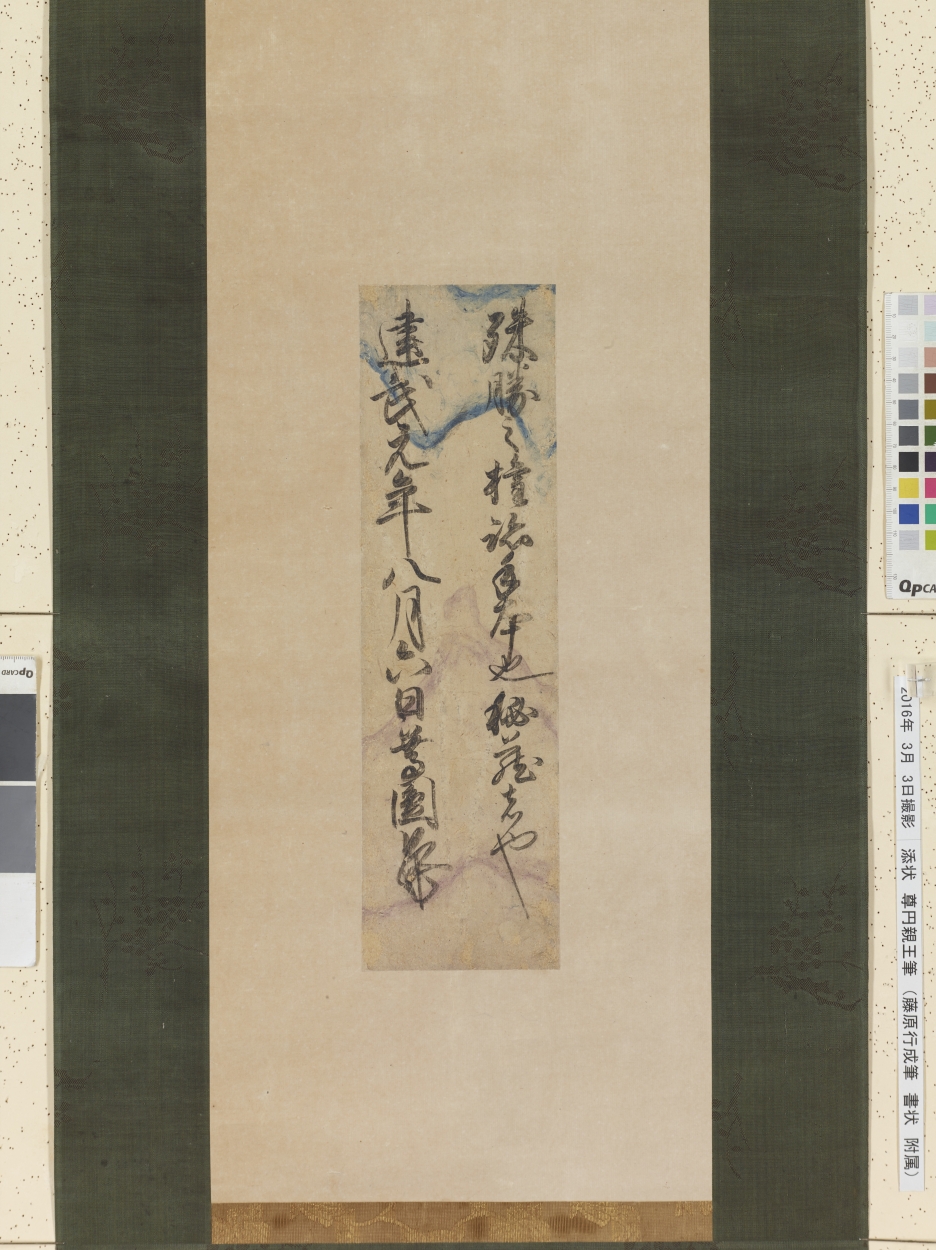 殊勝之権跡手本也秘蔵者や
建武元年八月六日尊圓
2016年 3月 3日撮影 添状 尊円親王筆 (藤原行成筆 書状 附属)
QPCARD